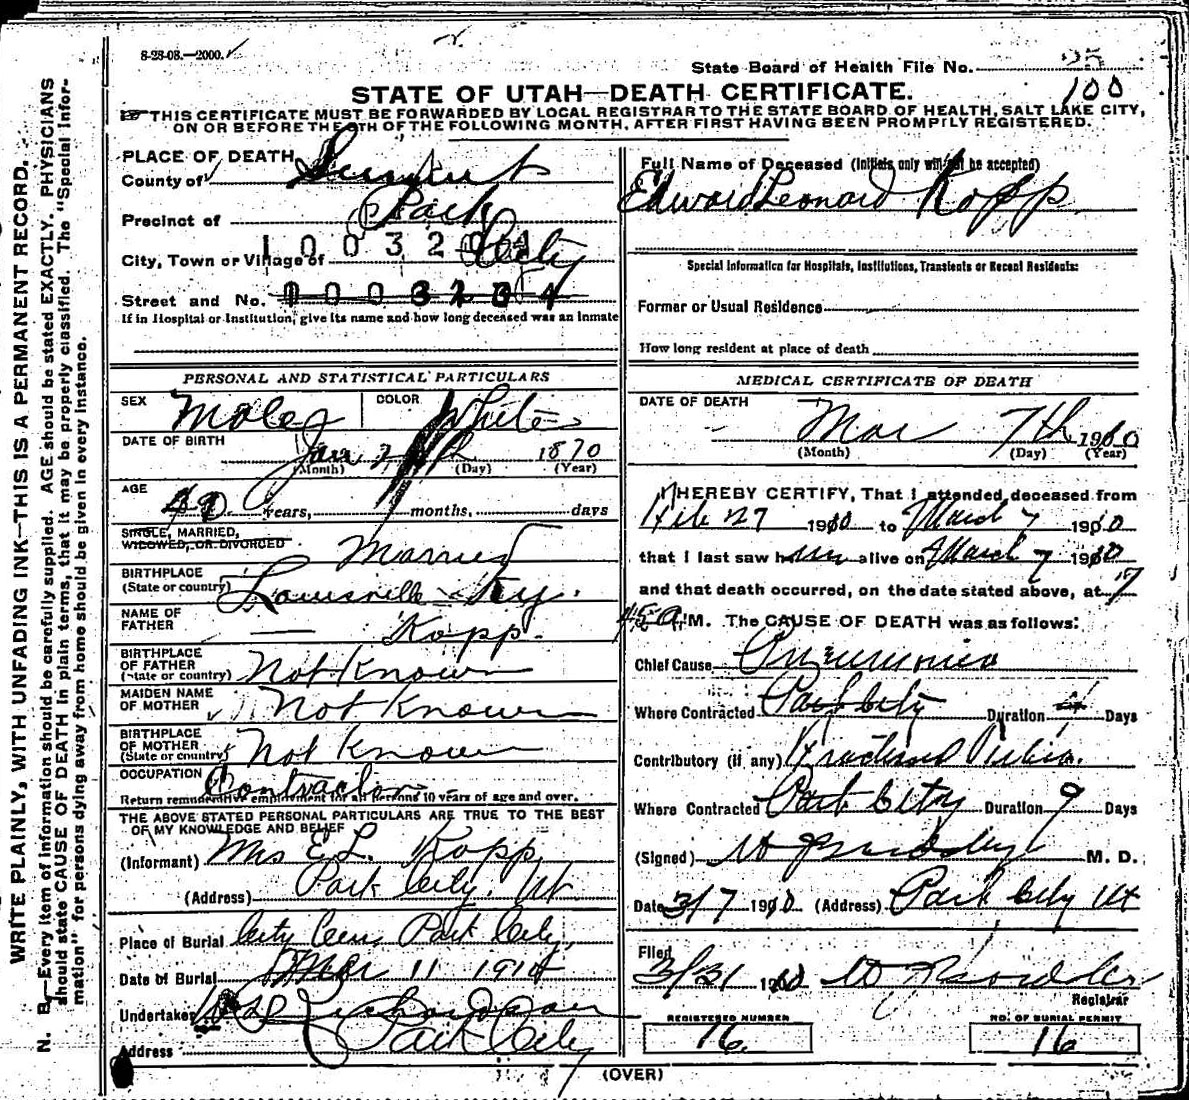 8-28-08.—2000.
State Board of Health File No. 25
100
STATE OF UTAH—DEATH CERTIFICATE.
THIS CERTIFICATE MUST BE FORWARDED BY LOCAL REGISTRAR TO THE STATE BOARD OF HEALTH, SALT LAKE CITY,
ON OR BEFORE THE 5TH OF THE FOLLOWING MONTH, AFTER FIRST HAVING BEEN PROMPTLY REGISTERED.
PLACE OF DEATH
County of Summit
Precinct of Park
City, Town or Village of City
Street and No.
If in Hospital or Institution, give its name and how long deceased was an inmate
PERSONAL AND STATISTICAL PARTICULARS
SEX Male COLOR White
DATE OF BIRTH Jan 1870
(Month) (Day) (Year)
AGE 40 years, months, days
SINGLE, MARRIED,
WIDOWED, OR DIVORCED Married
BIRTHPLACE
(State or country) Louisville Ky.
NAME OF
FATHER — Kopp.
BIRTHPLACE
OF FATHER
(State or country) Not Known
MAIDEN NAME
OF MOTHER Not Known
BIRTHPLACE
OF MOTHER
(State or country) Not Known
OCCUPATION Contractor
Return remunerative employment for all persons 10 years of age and over.
THE ABOVE STATED PERSONAL PARTICULARS ARE TRUE TO THE BEST
OF MY KNOWLEDGE AND BELIEF
(Informant) Mrs E. L. Kopp
(Address) Park City, Ut
Place of Burial City Cem, Park City,
Date of Burial Mar 11 1910
Undertaker Richardson
Address Park City
Full Name of Deceased (Initials only will not be accepted)
Edward Leonard Kopp
Special Information for Hospitals, Institutions, Transients or Recent Residents:
Former or Usual Residence
How long resident at place of death
MEDICAL CERTIFICATE OF DEATH
DATE OF DEATH
Mar 7th 1910
(Month) (Day) (Year)
I HEREBY CERTIFY, That I attended deceased from
Feb 27 1910 to March 7 1910
that I last saw him alive on March 7 1910
and that death occurred, on the date stated above, at 7
45 A. M. The CAUSE OF DEATH was as follows:
Chief Cause Pneumonia
Where Contracted Park City Duration Days
Contributory (if any) Fractured Pelvis.
Where Contracted Park City Duration 9 Days
(Signed) M. D.
Date 3/7 1910 (Address) Park City Ut
Filed
3/31 1910
Registrar
REGISTERED NUMBER
16
NO. OF BURIAL PERMIT
16
(OVER)
WRITE PLAINLY, WITH UNFADING INK—THIS IS A PERMANENT RECORD.
N. B.—Every item of information should be carefully supplied. AGE should be stated EXACTLY. PHYSICIANS
should state CAUSE OF DEATH in plain terms, that it may be properly classified. The "Special Infor-
mation" for persons dying away from home should be given in every instance.